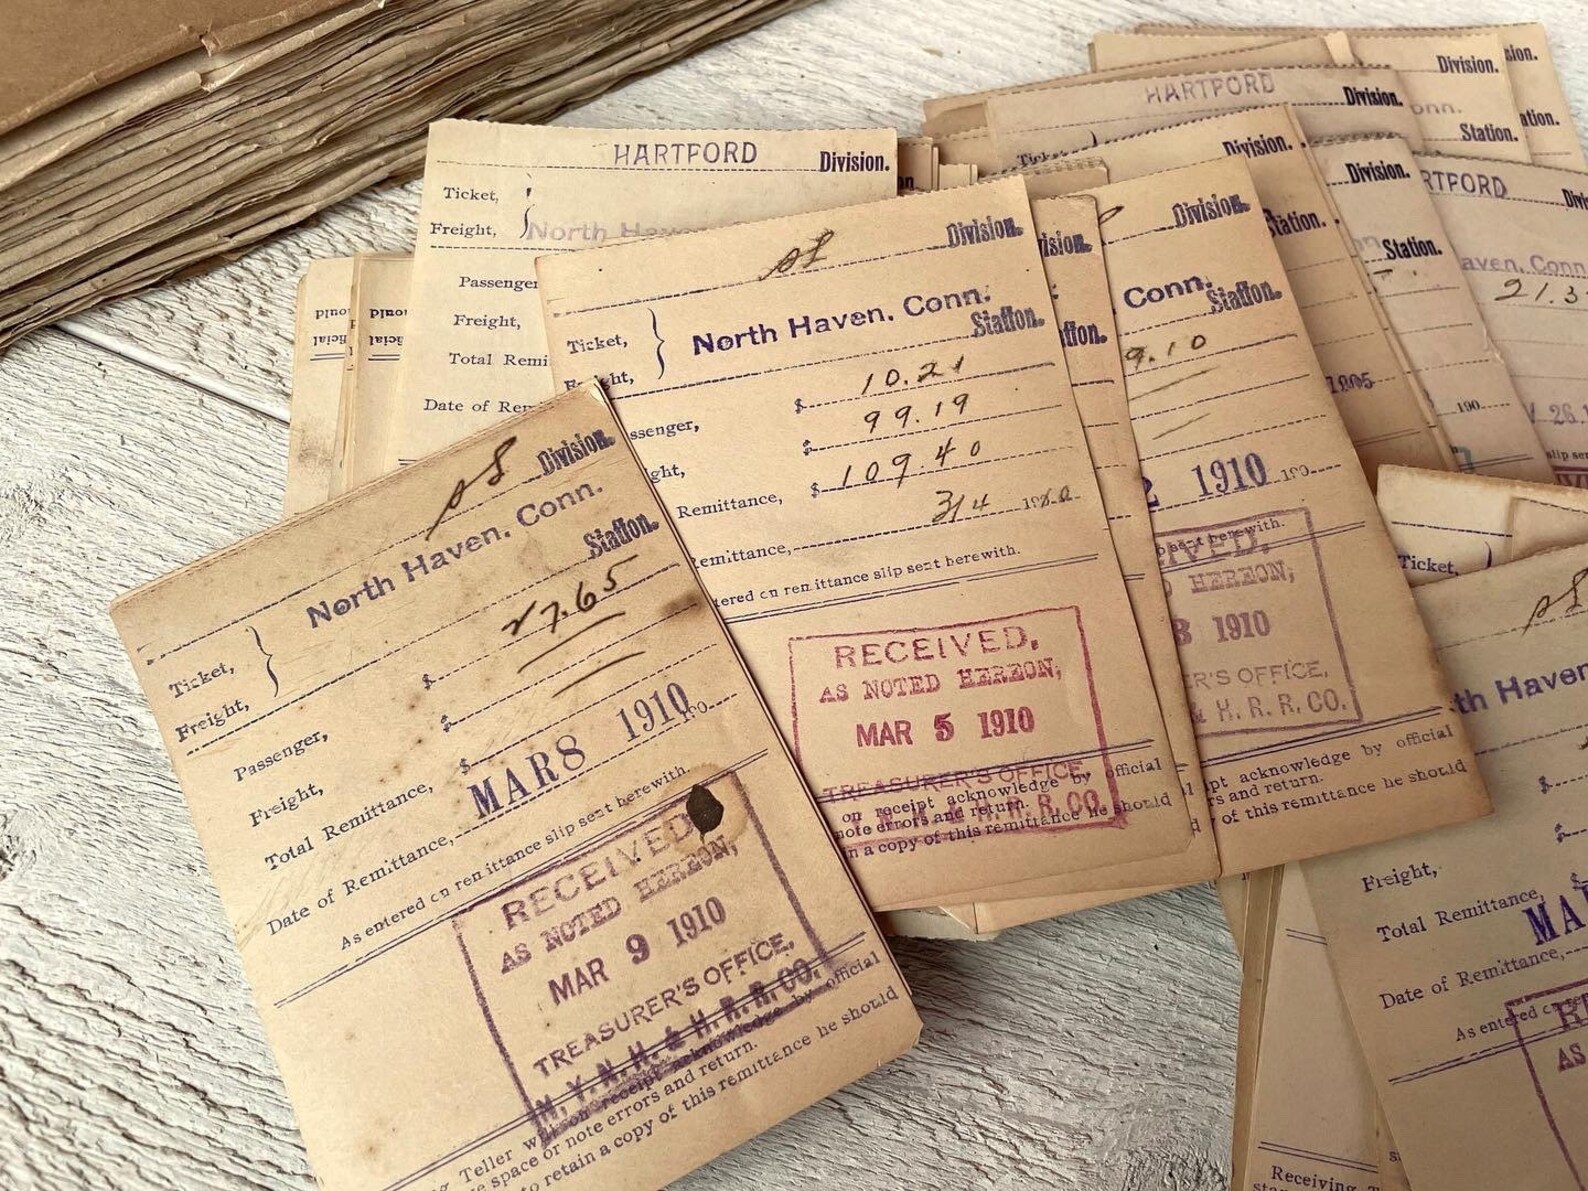 HARTFORD Division.
Ticket,
Freight,
North Haven
Passenger
Freight,
Total Remi
Date of Rem
Division.
North Haven, Conn.
Station.
Ticket,
Freight,
$ 27.65
Passenger, $
Freight, $
Total Remittance,
MAR 8 1910
Date of Remittance, 190
As entered on remittance slip sent herewith.
RECEIVED,
AS NOTED HEREON,
MAR 9 1910
TREASURER'S OFFICE,
N. Y. N. H. & H. R. R. CO.
Teller will on receipt acknowledge by official
space or note errors and return.
to retain a copy of this remittance he should
Division.
North Haven, Conn.
Station.
Ticket,
ght,
$ 10.21
ssenger, $ 99.19
ght, $ 109.40
Remittance, 3/4 19
Remittance,
tered on remittance slip sent herewith.
RECEIVED,
AS NOTED HEREON,
MAR 5 1910
TREASURER'S OFFICE,
N. H. & H. R. R. CO.
on receipt acknowledge by official
note errors and return.
n a copy of this remittance he should
Division.
Conn.
Station.
9.10
2 1910 190
sent herewith.
EIVED,
HEREON,
8 1910
ER'S OFFICE,
& H. R. R. CO.
pt acknowledge by official
rs and return.
of this remittance he should
HARTFORD Division.
Ticket
Division.
Station.
1905
Division.
Station.
190
Division.
onn.
Station.
sion.
ation.
RTFORD Divi
aven, Conn
21.3
26
Ticket,
th Haven
$
Freight, $
Total Remittance, $
MA
Date of Remittance,
As entered
RE
AS
Receiving